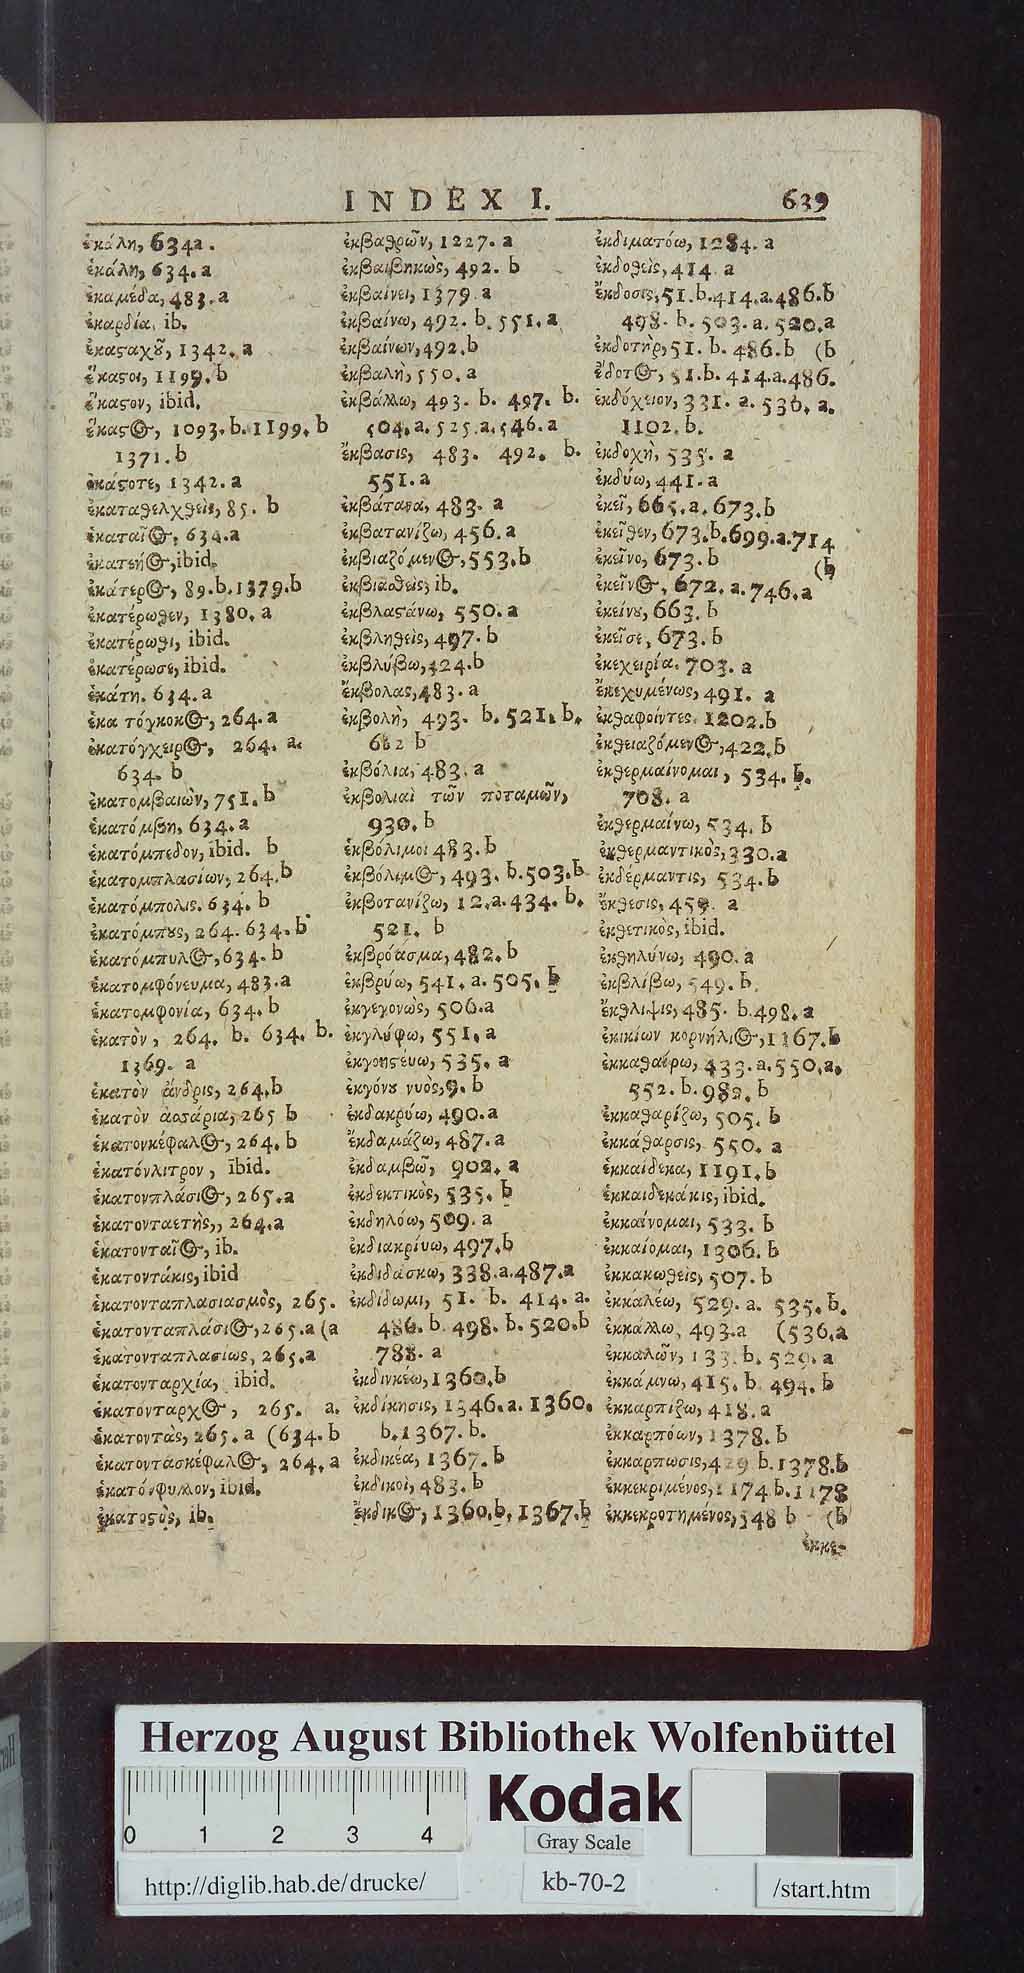 INDEX I. 639
ἑκάλη, 634a.
ἑκάλη, 634. a
ἑκαμέδα, 483. a
ἑκαρδία, ib.
ἑκαςαχοῦ, 1342. a
ἕκαςοι, 1199. b
ἕκαςον, ibid.
ἕκαςος, 1093. b. 1199. b
1371. b
ἑκάςοτε, 1342. a
ἑκαταθελχθεὶς, 85. b
ἑκαταῖος, 634. a
ἑκατεήος, ibid.
ἑκάτερος, 89. b. 1379. b
ἑκατέρωθεν, 1380. a
ἑκατέρωθι, ibid.
ἑκατέρωσε, ibid.
ἑκάτη. 634. a
ἑκα τόγκοκος, 264. a
ἑκατόγχειρος, 264. a.
634. b
ἑκατομβαιὼν, 751. b
ἑκατόμβη, 634. a
ἑκατόμπεδον, ibid. b
ἑκατομπλασίων, 264. b
ἑκατόμπολις. 634. b
ἑκατόμπους, 264. 634. b
ἑκατόμπυλος, 634. b
ἑκατομφόνευμα, 483. a
ἑκατομφονία, 634. b
ἑκατὸν, 264. b. 634. b.
1369. a
ἑκατὸν ἄνδρις, 264. b
ἑκατὸν ἀσσάρια, 265 b
ἑκατονκέφαλος, 264. b
ἑκατόνλιτρον, ibid.
ἑκατονπλάσιος, 265. a
ἑκατονταετὴς,, 264. a
ἑκατονταῖος, ib.
ἑκατοντάκις, ibid
ἑκατονταπλασιασμὸς, 265.
ἑκατονταπλάσιος, 265. a (a
ἑκατονταπλασίως, 265. a
ἑκατονταρχία, ibid.
ἑκατονταρχος, 265. a.
ἑκατοντὰς, 265. a (634. b
ἑκατοντάσκέφαλος, 264. a
ἑκατόνφυλλον, ibid.
ἑκατοςὸς, ib.
ἐκβαθρῶν, 1227. a
ἐκβαιβηκὼς, 492. b
ἐκβαίνει, 1379. a
ἐκβαίνω, 492. b. 551. a
ἐκβαίνων, 492. b
ἐκβαλῆ, 550. a
ἐκβάλλω, 493. b. 497. b.
504. a. 525. a. 546. a
ἔκβασις, 483. 492. b.
551. a
ἐκβάταρα, 483. a
ἐκβατανίζω, 456. a
ἐκβιαζόμενος, 553. b
ἐκβιαθεὶς, ib.
ἐκβλαςάνω, 550. a
ἐκβληθεὶς, 497. b
ἐκβλύβω, 424. b
ἔκβολας, 483. a
ἐκβολὴ, 493. b. 521. b.
662 b
ἐκβόλια, 483. a
ἐκβολιαὶ τῶν ποταμῶν,
930. b
ἐκβόλιμοι 483. b
ἐκβόλιμος, 493. b. 503. b
ἐκβοτανίζω, 12. a. 434. b.
521. b
ἐκβρόασμα, 482. b
ἐκβρύω, 541. a. 505. b
ἐκγεγονὼς, 506. a
ἐκγλύφω, 551. a
ἐκγοητεύω, 535. a
ἐκγόνου νυὸς, 9. b
ἐκδακρύω, 490. a
ἐκδαμάζω, 487. a
ἐκδαμβῶ, 902. a
ἐκδεκτικὸς, 535. b
ἐκδηλόω, 509. a
ἐκδιακρίνω, 497. b
ἐκδιδάσκω, 338. a. 487. a
ἐκδίδωμι, 51. b. 414. a.
486. b. 498. b. 520. b
788. a
ἐκδινκέω, 1360. b
ἐκδίκησις, 1346. a. 1360.
b. 1367. b.
ἐκδικέα, 1367. b
ἐκδικοὶ, 483. b
ἔκδικος, 1360. b. 1367. b
ἐκδιματόω, 1284. a
ἐκδοθεὶς, 414. a
ἔκδοσις, 51. b. 414. a. 486. b
498. b. 503. a. 520. a
ἐκδοτὴρ, 51. b. 486. b (b
ἔδοτος, 51. b. 414. a. 486.
ἐκδόχειον, 331. a. 536. a.
1102. b.
ἐκδοχὴ, 535. a
ἐκδύω, 441. a
ἐκεῖ, 665. a. 673. b
ἐκεῖθεν, 673. b. 699. a. 714
ἐκεῖνο, 673. b (b
ἐκεῖνος, 672. a. 746. a
ἐκείνου, 663. b
ἐκεῖσε, 673. b
ἐκεχειρία. 703. a
ἐκεχυμένως, 491. a
ἐκθαφοίντες. 1202. b
ἐκθειαζόμενος, 422. b
ἐκθερμαίνομαι, 534. b.
708. a
ἐκθερμαίνω, 534. b
ἐκθερμαντικὸς, 330. a
ἐκδέρμαντις, 534. b
ἔκθεσις, 459. a
ἐκθετικὸς, ibid.
ἐκθηλύνω, 490. a
ἐκβλίβω, 549. b.
ἔκθλιψις, 485. b. 498. a
ἐκικίων κορνήλιος, 1167. b
ἐκκαθαίρω, 433. a. 550. a.
552. b. 982. b
ἐκκαθαρίζω, 505. b
ἐκκάθαρσις, 550. a
ἑκκαίδεκα, 1191. b
ἑκκαιδεκάκις, ibid.
ἐκκαίνομαι, 533. b
ἐκκαίομαι, 1306. b
ἐκκακωθεὶς, 507. b
ἐκκαλέω, 529. a. 535. b.
ἐκκάλλω, 493. a (536. a
ἐκκαλῶν, 133. b. 529. a
ἐκκάμνω, 415. b 494. b
ἐκκαρπίζω, 418. a
ἐκκαρπόων, 1378. b
ἐκκαρπωσις, 429 b. 1378. b
ἐκκεκριμένος, 1174 b. 1178
ἐκκεκροτημένος, 348 b (b
ἐκκε-
Herzog August Bibliothek Wolfenbüttel
0 1 2 3 4
Kodak
Gray Scale
http://diglib.hab.de/drucke/ kb-70-2 /start.htm